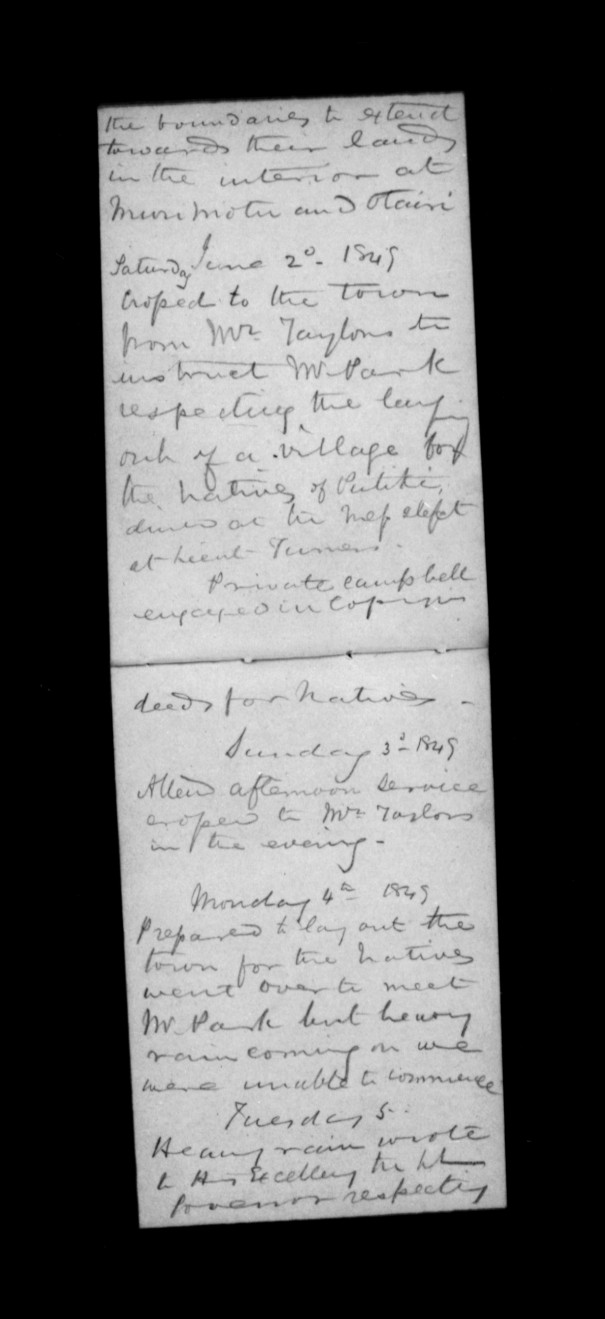 the boundaries to extend
towards their lands
in the interior at
Murimotu and Otairi
Saturday June 2d. 1849
Croped to the town
from Mr. Taylors to
instruct Mr Park
respecting the laying
out of a village for
the natives of Putiki,
dined at the Mess slept
at Lieut Turners.
Private Campbell
engaged in Copying
deeds for Natives -
Sunday 3d 1849
Attend afternoon service
croped to Mr Taylors
in the evening -
Monday 4th 1849
Prepared to lay out the
town for the Natives
went over to meet
Mr Park but heavy
rain coming on we
were unable to commence
Tuesday 5.
Heavy rain wrote
to His Excellency the
Governor respecting